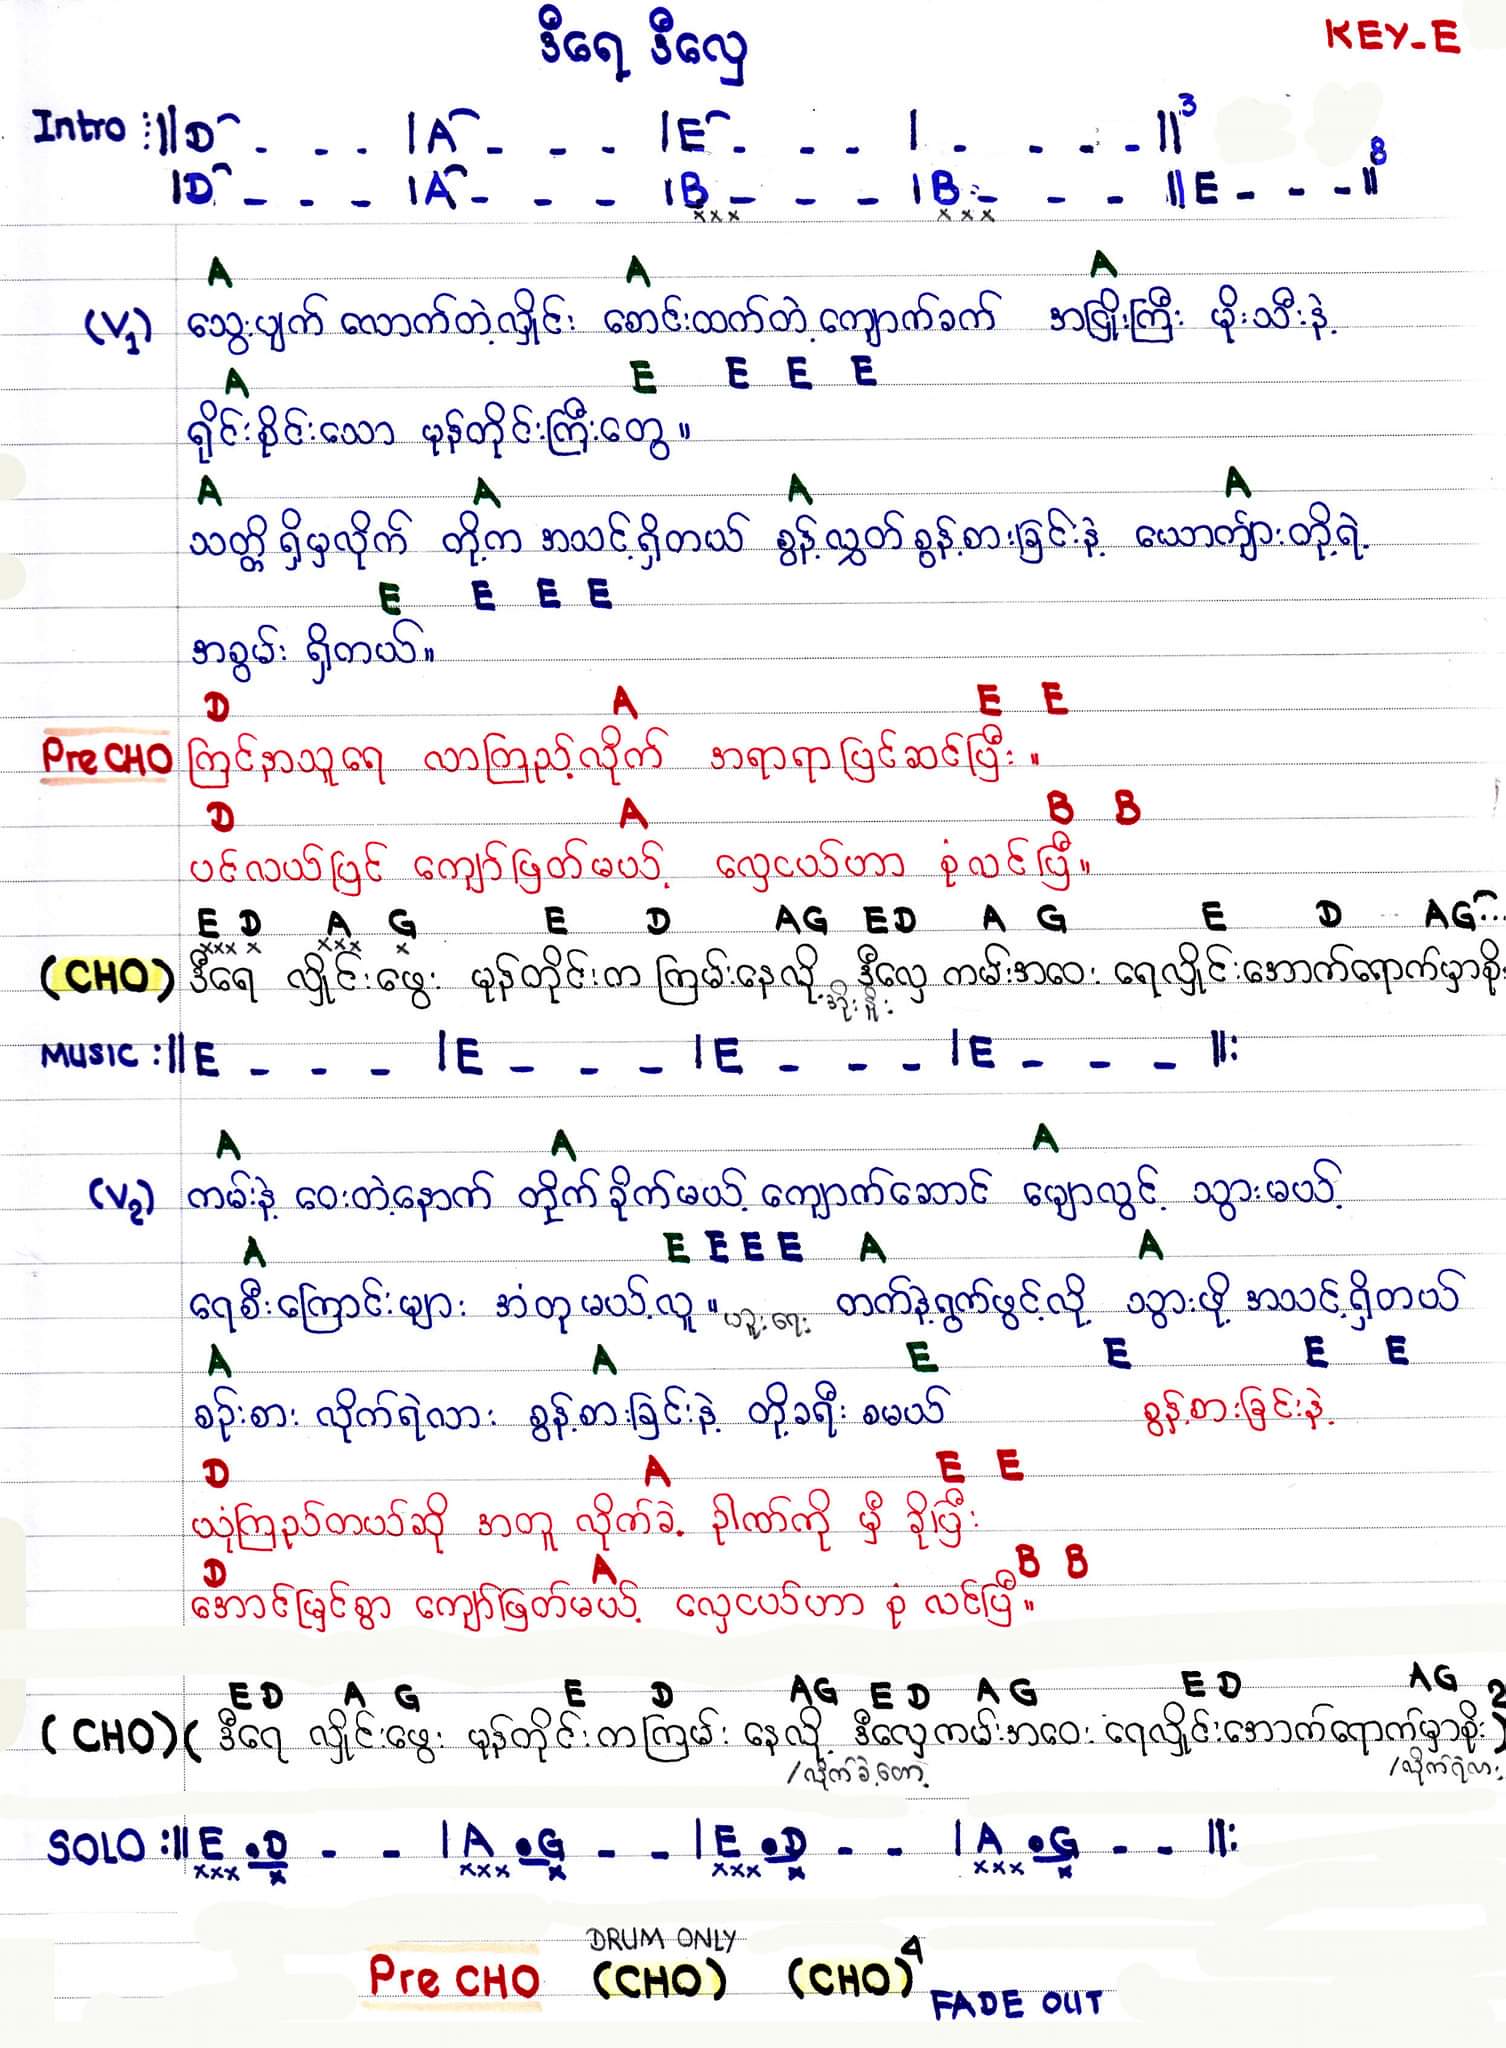 ဒီရေ ဒီလှေ
KEY-E
Intro :||D - - - |A - - - |E - - - | - - - - ||3
|D - - - |A - - - |B - - - |B - - - ||E - - - ||8
xxx xxx
A A A
(V1) သွေးပျက်လောက်တဲ့လှိုင်း စောင်းထက်တဲ့ကျောက်ခက် အငြိုးကြီး မိုးသီးနဲ့
A E E E E
ရိုင်းစိုင်းသော မုန်တိုင်းကြီးတွေ။
A A A A
သတ္တိရှိမှလိုက် တို့က အသင့်ရှိတယ် စွန့်လွှတ်စွန့်စားခြင်းနဲ့ ယောက်ျားတို့ရဲ့
E E E E
အစွမ်း ရှိတယ်။
D A E E
Pre CHO ကြင်နာသူရေ လာကြည့်လိုက် အရာရာပြင်ဆင်ပြီး။
D A B B
ပင်လယ်ပြင် ကျော်ဖြတ်မယ့် လှေငယ်ဟာ စုံလင်ပြီ။
E D A G E D AG ED A G E D AG...
xxx x xxx x
(CHO) ဒီရေ လှိုင်းဖွေး မုန်တိုင်းက ကြမ်းနေလို့ ဒီလှေ ကမ်းအဝေး ရေလှိုင်းအောက်ရောက်မှာစိုး
MUSIC :||E - - - |E - - - |E - - - |E - - - ||:
A A A
(V2) ကမ်းနဲ့ ဝေးတဲ့နောက် တိုက်ခိုက်မယ့် ကျောက်ဆောင် မျောလွင့် သွားမယ့်
A E E E E A A
ရေစီးကြောင်းများ အံတုမယ့်လူ။ တက်နဲ့ရွက်ဖွင့်လို့ သွားဖို့ အသင့်ရှိတယ်
A A E E E E
စဉ်းစား လိုက်ရဲလား စွန့်စားခြင်းနဲ့ တို့ခရီး စမယ် စွန့်စားခြင်းနဲ့
D A E E
ယုံကြည်တယ်ဆို အတူ လိုက်ခဲ့ ဥာဏ်ကို မှီ ခိုပြီး
D A B B
အောင်မြင်စွာ ကျော်ဖြတ်မယ့် လှေငယ်ဟာ စုံ လင်ပြီ။
ED A G E D AG ED AG ED AG 2
(CHO)( ဒီရေ လှိုင်းဖွေး မုန်တိုင်းကကြမ်း နေလို့ ဒီလှေကမ်းအဝေး ရေလှိုင်းအောက်ရောက်မှာစိုး)
/လိုက်ခဲ့တော့ /လိုက်ရဲလား
SOLO :||E .D - - |A .G - - |E .D - - |A .G - - ||:
xxx x xxx x xxx x xxx x
DRUM ONLY
Pre CHO (CHO) (CHO)4
FADE OUT